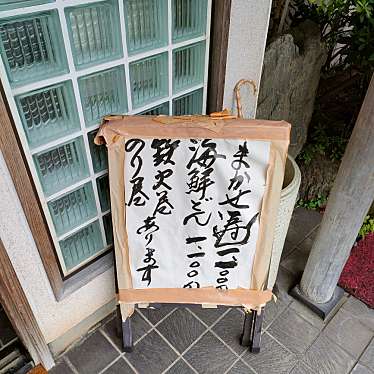 まかせ寿し 一、一〇〇円
海鮮どん 一、一〇〇円
鉄火巻
のり巻 あります